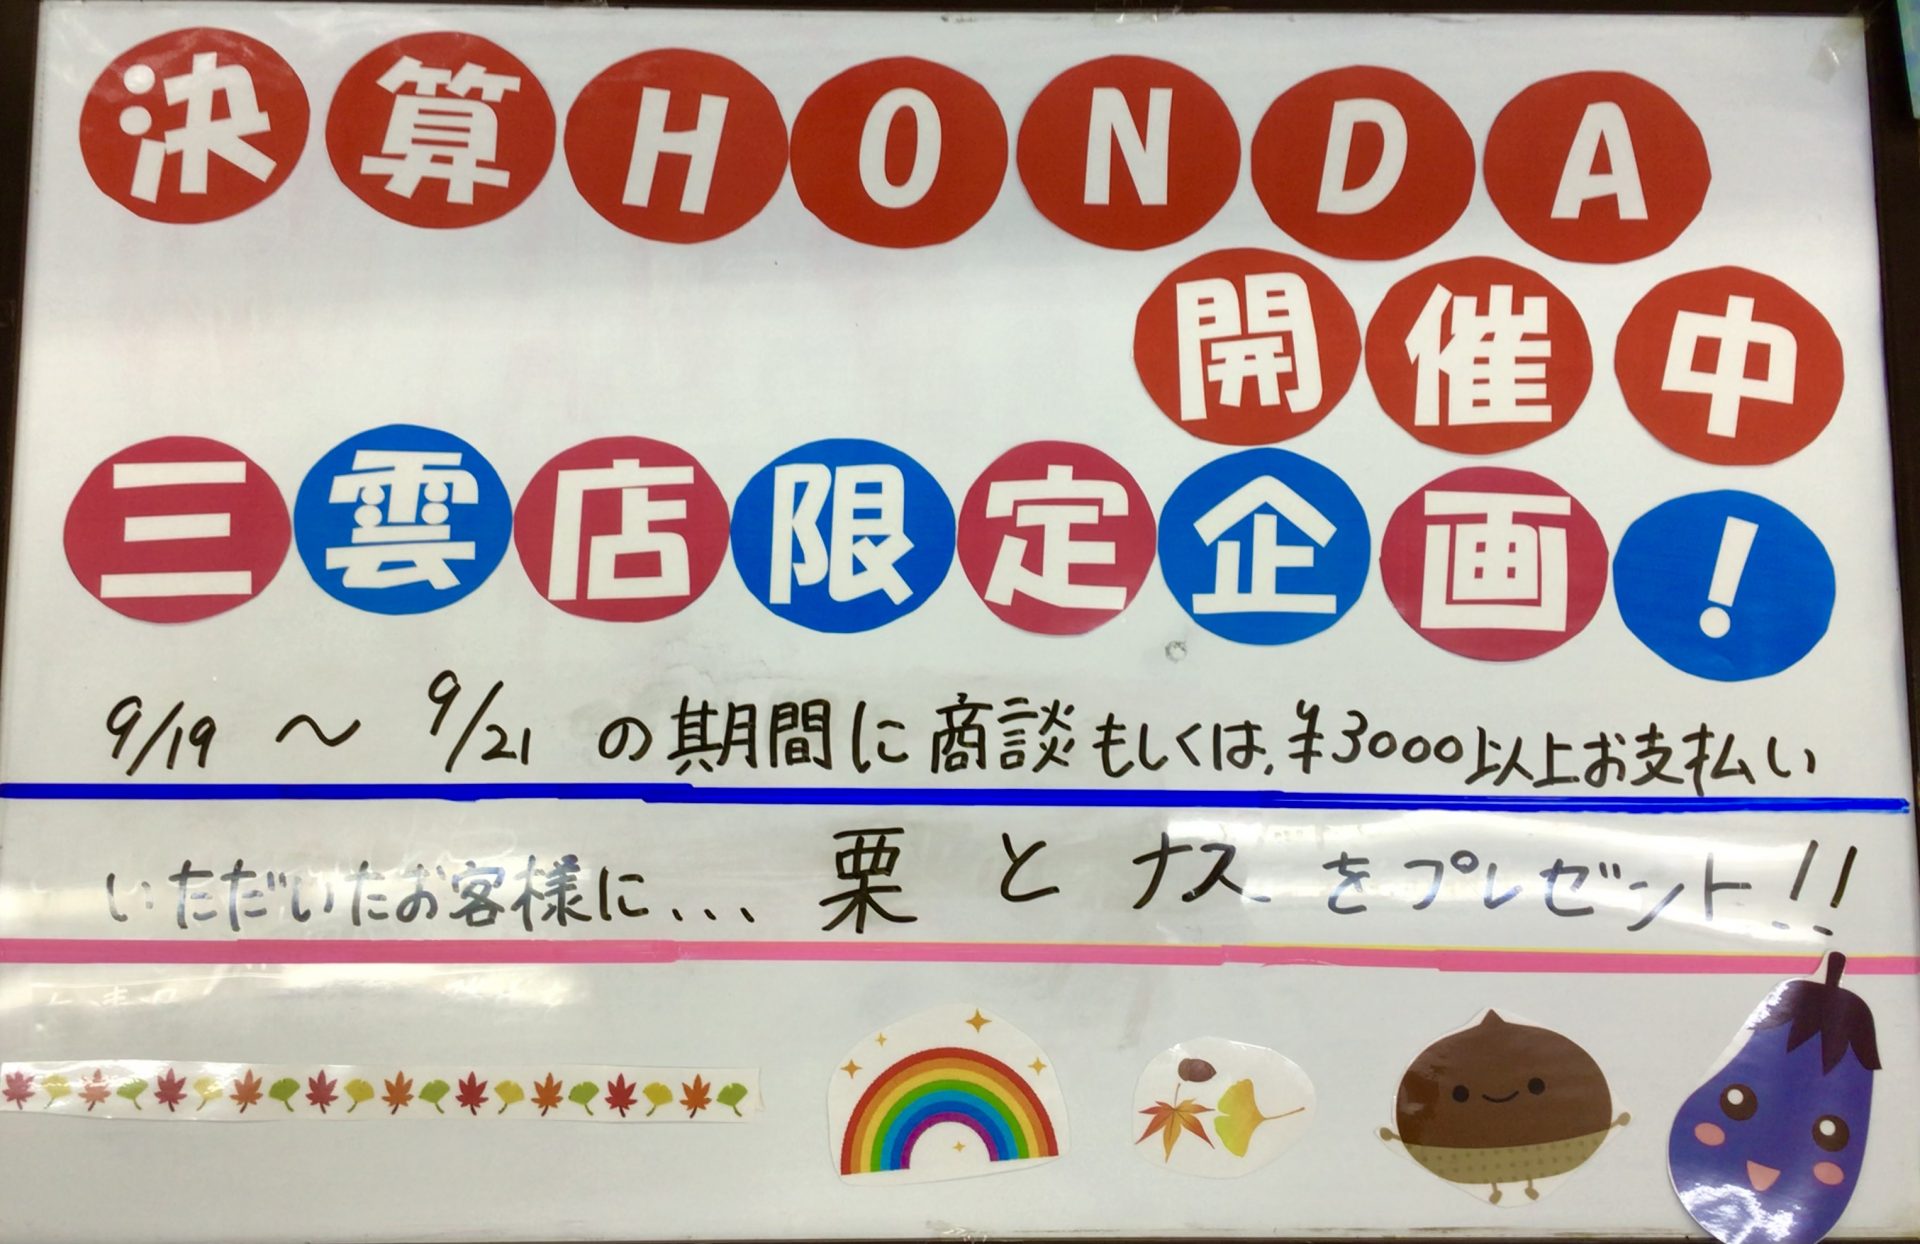 決算HONDA
開催中
三雲店限定企画!
9/19 〜 9/21 の期間に商談もしくは、¥3000以上お支払い
いただいたお客様に... 栗 と ナス をプレゼント!!